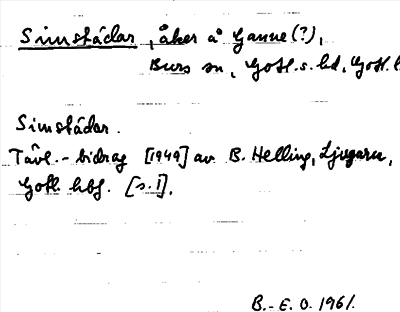 Simstådar, åker å Ganne(?),
Burs sn, Gotl. s. hd, Gotl. l
Simstådar.
Tävl.-bidrag [1949] av B. Helling, Ljugarn,
Gotl. hbf. [s. 1].
B.-E. O. 1961.